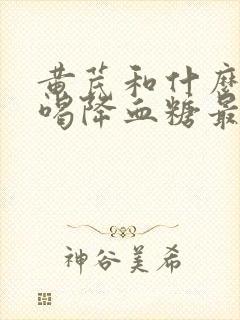 黄芪和什么
喝降血糖最
神谷美希